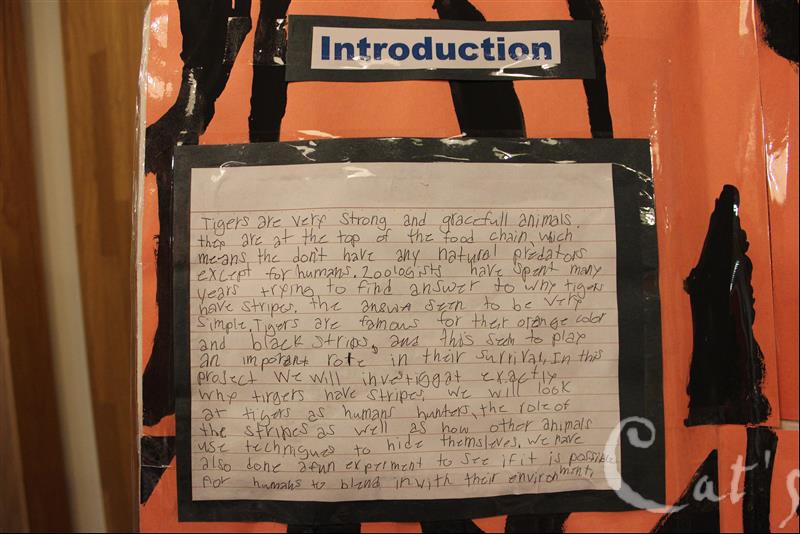 Introduction
Tigers are very strong and gracefull animals.
they are at the top of the food chain, which
means the don't have any natural predators
except for humans. Zoologists have spent many
years trying to find answer to why tigers
have stripes. the answe seem to be very
simple. Tigers are famous for their orange color
and black strips, and this seem to play
an important rote in their survival. In this
project we will investiggat exactly
why tirgers have stripes. we will look
at tigers as humans hunters, the role of
the stripes as well as how other animals
use techniques to hide themselves. we have
also done a fun experment to see if it is possible
for humans to blend in with their environment.
Cat's